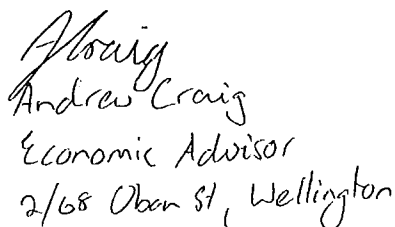 ACraig
Andrew Craig
Economic Advisor
2/68 Oban St, Wellington